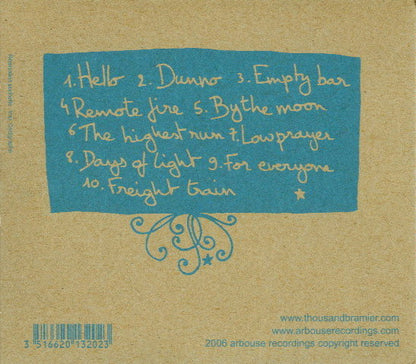 1.Hello 2. Dunno 3. Empty bar
4 Remote fire 5. By the moon
6 The highest run 7. Low prayer
8. Days of light 9. For everyone
10. Freight train
www.thousandbramier.com
www.arbouserecordings.com
2006 arbouse recordings copyright reserved
3 516620 132023